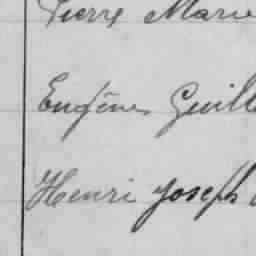 Pierre Marie
Eugène Guill
Henri Joseph